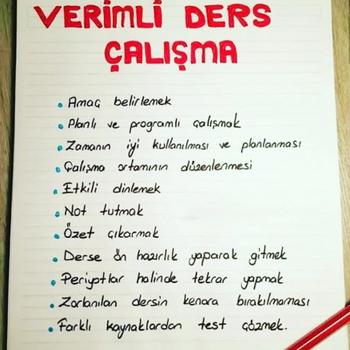 VERIMLİ DERS
ÇALIŞMA
Amaç belirlemek
Planlı ve programlı çalışmak
Zamanın iyi kullanılması ve planlanması
Çalışma ortamının düzenlenmesi
Etkili dinlemek
Not tutmak
Özet çıkarmak
Derse ön hazırlık yaparak gitmek
Periyotlar halinde tekrar yapmak
Zorlanılan dersin kenara bırakılmaması
Farklı kaynaklardan test çözmek.